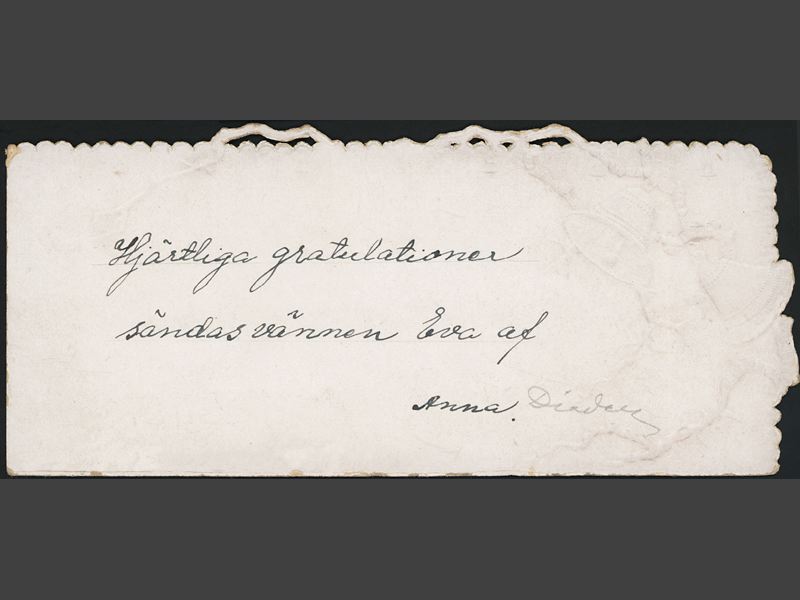 Hjärtliga gratulationer
sändas vännen Eva af
Anna.